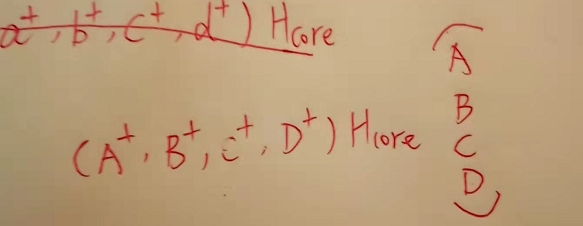 a⁺, b⁺, c⁺, d⁺) Hcore
(A⁺, B⁺, C⁺, D⁺) Hcore (A
B
C
D)